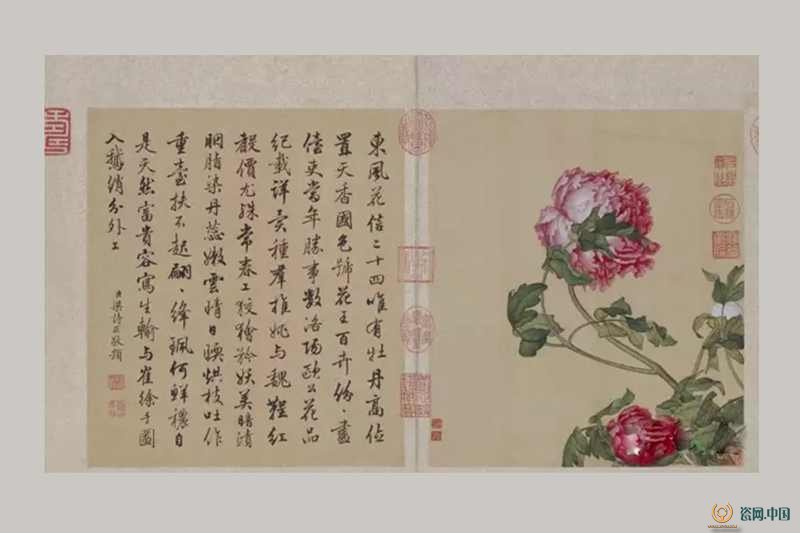 東風花信二十四唯有牡丹高位
置天香國色號花王百卉份〻盡
吏當年勝事數洛陽歐公花品
紀載詳異種羣推姚與魏鞓紅
聲價尤殊常春工狡獪矜妖美暗漬
胭脂染丹蕊嫩雲晴日暖烘枝吐作
重臺扶不起翩〻絳珮何鮮穠自
是天然富貴容寫生輸與崔徐手圖
入鵝綃分外工
臣梁詩正敬題
瓷网.中国